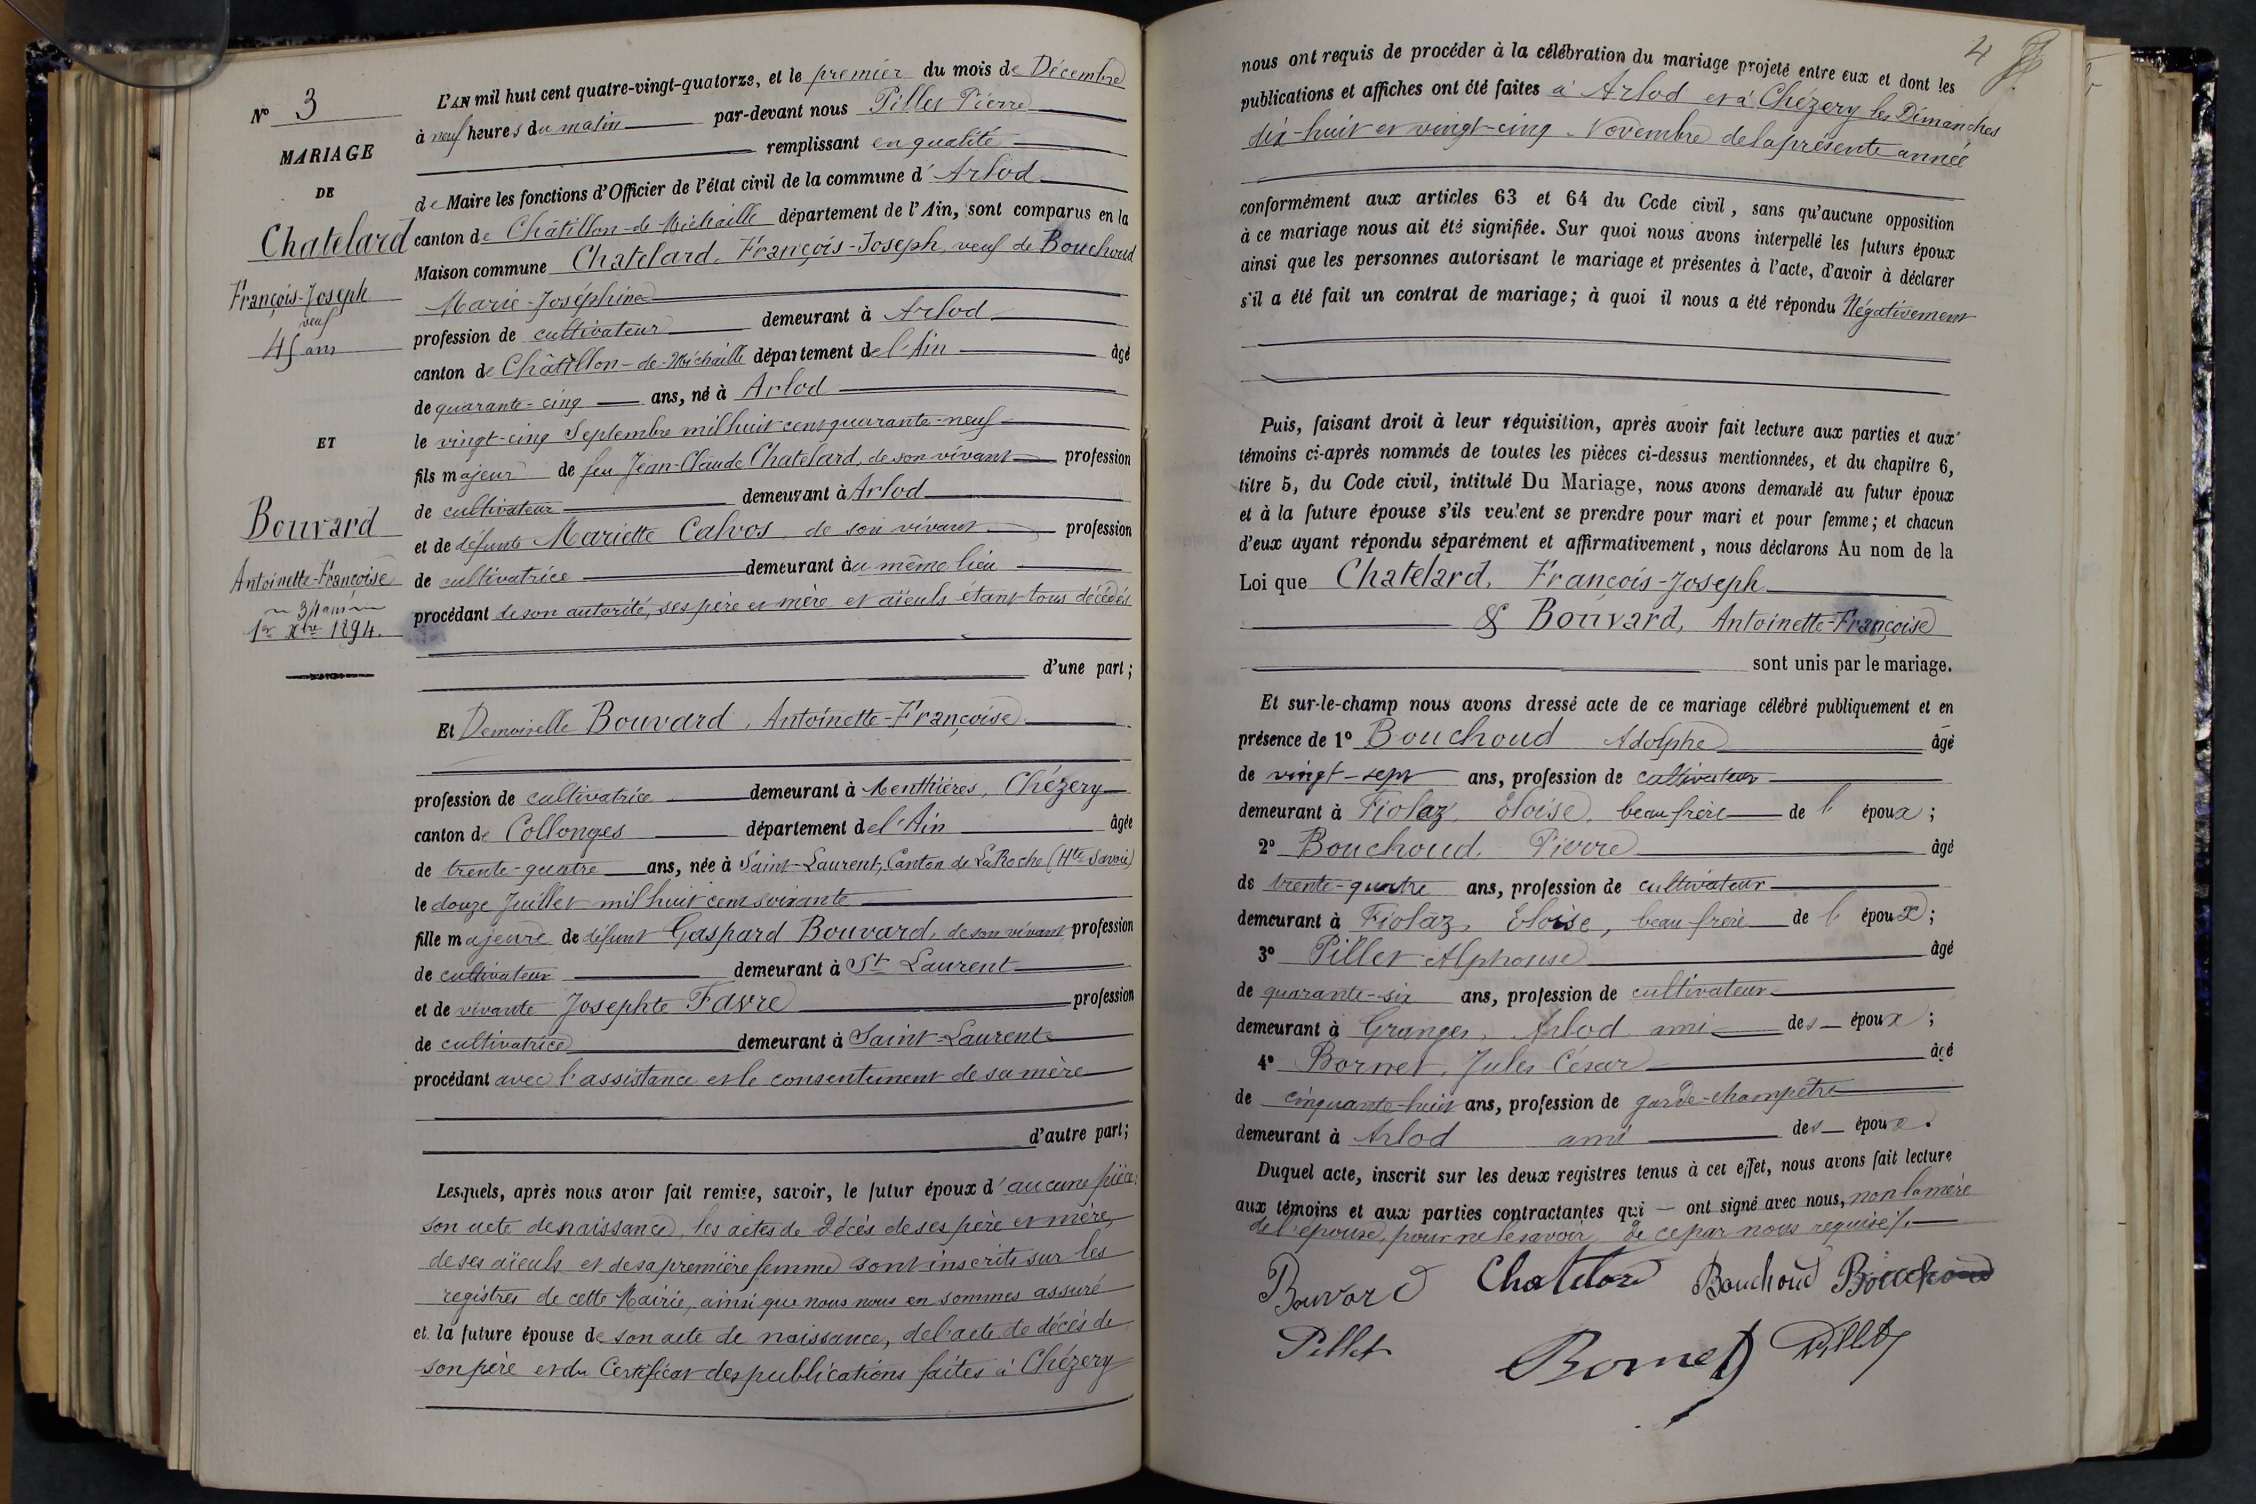 N° 3
MARIAGE
DE
Chatelard
François-Joseph
veuf
45 ans
ET
Bouvard
Antoinette-Françoise
34 ans
1er Xbre 1894.
L'AN mil huit cent quatre-vingt-quatorze, et le premier du mois de Décembre
à neuf heures du matin par-devant nous Pillet Pierre
remplissant en qualité
de Maire les fonctions d'Officier de l'état civil de la commune d'Arlod
canton de Châtillon-de-Michaille département de l'Ain, sont comparus en la
Maison commune Chatelard, François-Joseph, veuf de Bouchoud
Marie-Joséphine
profession de cultivateur demeurant à Arlod
canton de Châtillon-de-Michaille département de l'Ain âgé
de quarante-cinq ans, né à Arlod
le vingt-cinq Septembre mil huit cent quarante-neuf
fils majeur de feu Jean-Claude Chatelard, de son vivant profession
de cultivateur demeurant à Arlod
et de défunte Mariette Calvos, de son vivant profession
de cultivatrice demeurant au même lieu
procédant de son autorité, ses père et mère et aïeuls étant tous décédés
d'une part;
Et Demoiselle Bouvard, Antoinette-Françoise
profession de cultivatrice demeurant à Menthières, Chézery
canton de Collonges département de l'Ain âgée
de trente-quatre ans, née à Saint-Laurent, Canton de La Roche (Hte Savoie)
le douze Juillet mil huit cent soixante
fille majeure de défunt Gaspard Bouvard, de son vivant profession
de cultivateur demeurant à St Laurent
et de vivante Josephte Favre profession
de cultivatrice demeurant à Saint-Laurent
procédant avec l'assistance et le consentement de sa mère
d'autre part;
Lesquels, après nous avoir fait remise, savoir, le futur époux d'aucune pièce;
son acte de naissance, les actes de décès de ses père et mère,
de ses aïeuls et de sa première femme sont inscrits sur les
registres de cette Mairie, ainsi que nous nous en sommes assuré
et la future épouse de son acte de naissance, de l'acte de décès de
son père et du Certificat des publications faites à Chézery
4
nous ont requis de procéder à la célébration du mariage projeté entre eux et dont les
publications et affiches ont été faites à Arlod et à Chézery les Dimanches
dix-huit et vingt-cinq Novembre de la présente année
conformément aux articles 63 et 64 du Code civil, sans qu'aucune opposition
à ce mariage nous ait été signifiée. Sur quoi nous avons interpellé les futurs époux
ainsi que les personnes autorisant le mariage et présentes à l'acte, d'avoir à déclarer
s'il a été fait un contrat de mariage; à quoi il nous a été répondu Négativement
Puis, faisant droit à leur réquisition, après avoir fait lecture aux parties et aux
témoins ci-après nommés de toutes les pièces ci-dessus mentionnées, et du chapitre 6,
titre 5, du Code civil, intitulé Du Mariage, nous avons demandé au futur époux
et à la future épouse s'ils veulent se prendre pour mari et pour femme; et chacun
d'eux ayant répondu séparément et affirmativement, nous déclarons Au nom de la
Loi que Chatelard, François-Joseph
& Bouvard, Antoinette-Françoise
sont unis par le mariage.
Et sur-le-champ nous avons dressé acte de ce mariage célébré publiquement et en
présence de 1° Bouchoud Adolphe âgé
de vingt-sept ans, profession de cultivateur
demeurant à Fiolaz Eloise, beau frère de l'époux;
2° Bouchoud Pierre âgé
de trente-quatre ans, profession de cultivateur
demeurant à Fiolaz, Eloise, beau frère de l'époux;
3° Pillet Alphonse âgé
de quarante-six ans, profession de cultivateur
demeurant à Granges, Arlod ami des époux;
4° Bornet, Jules César âgé
de cinquante-huit ans, profession de garde-champêtre
demeurant à Arlod ami des époux.
Duquel acte, inscrit sur les deux registres tenus à cet effet, nous avons fait lecture
aux témoins et aux parties contractantes qui ont signé avec nous, non la mère
de l'épouse, pour ne le savoir de ce par nous requise /.
Bouvard Chatelard Bouchoud Bouchoud
Pillet Bornet Pillet